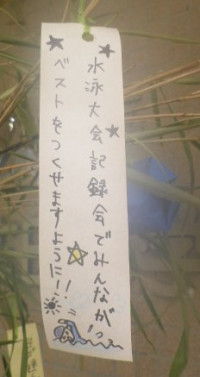 水泳大会記録会でみんなが
ベストをつくせますように!!